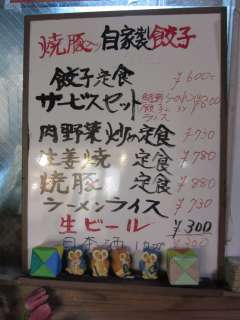 焼豚 自家製餃子
餃子定食 ¥600
サービスセット
肉野菜炒め定食 ¥750
生姜焼 定食 ¥780
焼豚 定食 ¥880
ラーメンライス ¥730
生ビール ¥300
日本酒 ¥300